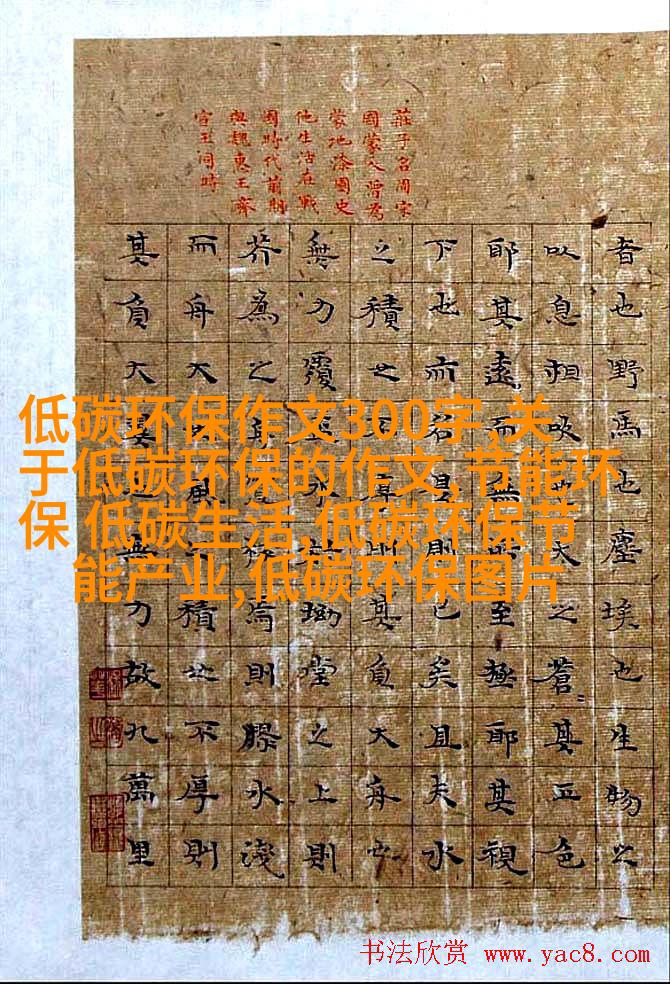 莊子名周宋
國蒙人曾為
蒙地漆園史
他生活在戰
國時代前期
與魏惠王齊
宣王同時
者也野馬也塵埃也生物之
以息相吹也天之蒼〻其正色
耶其遠而無所至極耶其視
下也亦若是則已矣且夫水
之積也不厚則其負大舟也
無力覆杯水於坳堂之上則
芥為之舟置杯焉則膠水淺
而舟大也風之積也不厚則
其負大翼也無力故九萬里
低碳环保作文300字,关
于低碳环保的作文,节能环
保 低碳生活,低碳环保节
能产业,低碳环保图片
书法欣赏 www.yac8.com